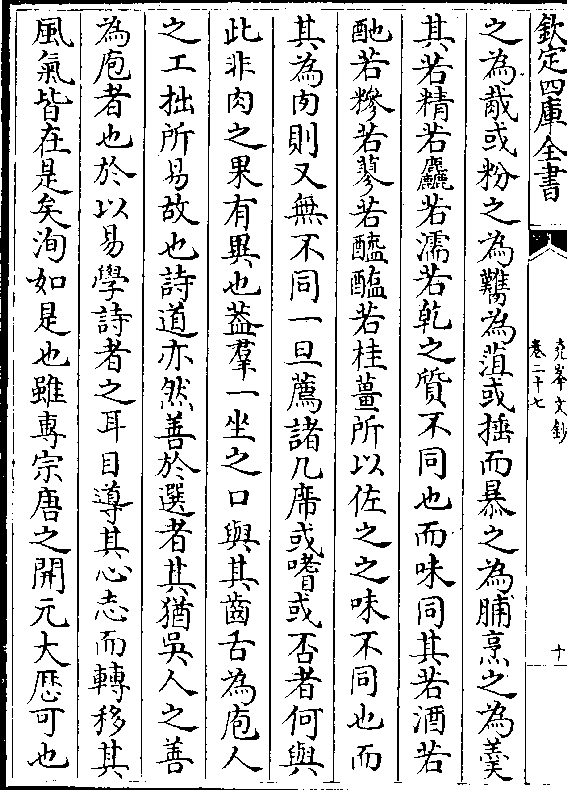 欽定四庫全書
堯峯文鈔
卷二十七
十
之為胾或粉之為臡為菹或捶而暴之為脯烹之為羹
其若精若麤若濡若乾之質不同也而味同其若酒若
酏若糝若蓼若醯醢若桂薑所以佐之之味不同也而
其為肉則又無不同一旦薦諸几席或嗜或否者何與
此非肉之果有異也葢羣一坐之口與其齒舌為庖人
之工拙所易故也詩道亦然善於選者其猶吳人之善
為庖者也於以易學詩者之耳目導其心志而轉移其
風氣皆在是矣洵如是也雖専宗唐之開元大厯可也